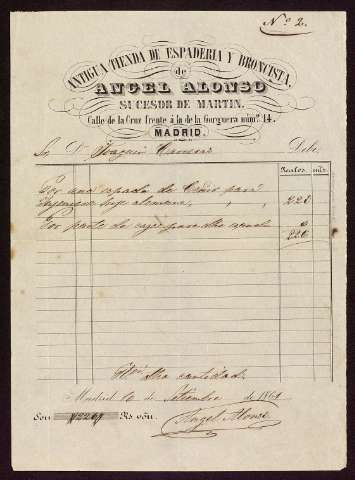 Nº 2.
ANTIGUA TIENDA DE ESPADERIA Y BRONCISTA,
de
ANGEL ALONSO
SUCESOR DE MARTIN.
Calle de la Cruz frente á la de la Gorguera núm.º 14.
MADRID.
Sr. Dn. Joaquin Debe.
Reales. mrs.
Por una espada de Ceñir para
220
Por porte de
220
cantidad.
Madrid de Setiembre de 1861
Son 220 Rs. von.
Angel Alonso